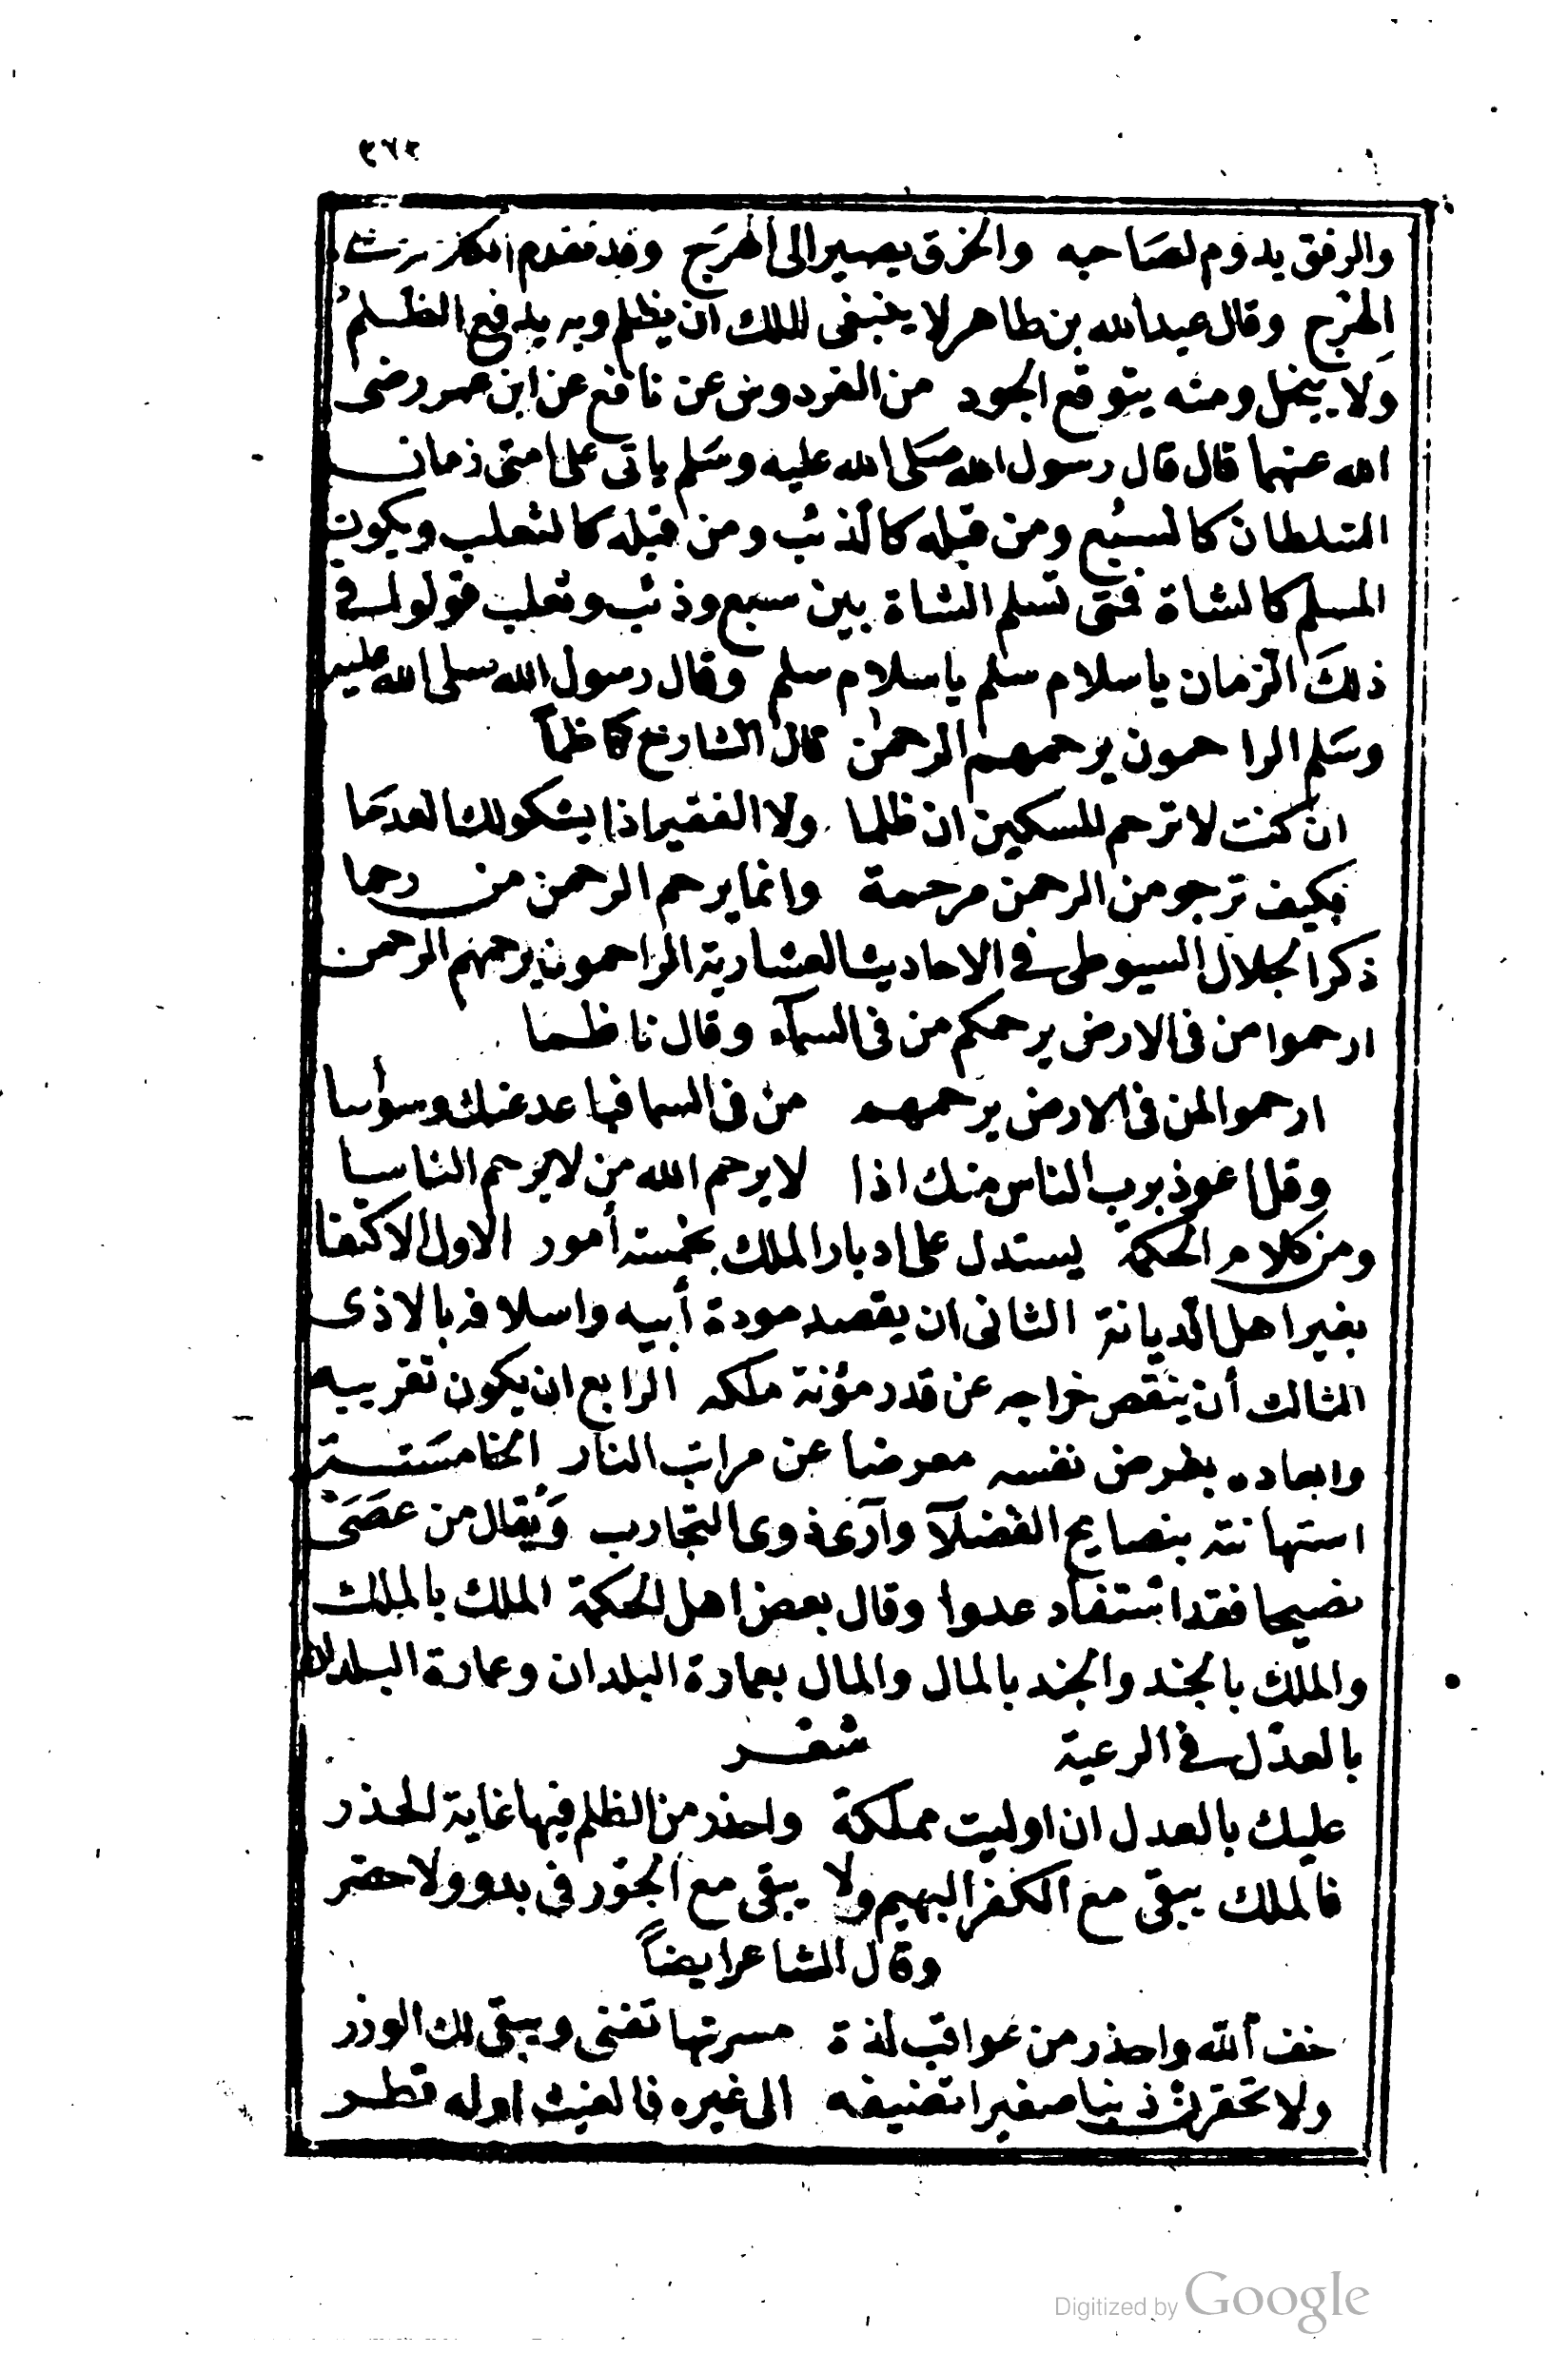 ٣٦٢
والرفق يدوم لصَاحبه والخرق يصير الى الهرَج وقد تقدم
الهرْج وقال عبدالله بن طاهر لا ينبغى للملك ان يظلم وبه يدفع الظلم
ولا يبخل ومنه يتوقع الجود من الفردوس عن نافع عن ابن عمر رضى
الله عنهما قال قال رسول الله صَلى الله عليه وسَلم ياتى على امتى زمان
السّلطان كالسبُع ومن قبله كالذئب ومن قبله كالثعلب ويكون
المسلم كالشاة فمتى تسلم الشاة بين سبع وذئب وثعلب قولوا فى
ذلكَ الزمان ياسلام سلم ياسلام سلم وقال رسول الله صلى الله عليه
وسَلم الراحمون يرحمهم الرحمٰن قال الشارع ناظماً
ان كنت لا ترحم المسكين ان ظلما ولا الفقير اذا يشكو لك العدَما
فكيف ترجو من الرحمن مرحمة وانما يرحم الرحمن من رحما
ذكر الجلال السيوطى فى الاحاديث العشارية الراحمون يرحمهم الرحمن
ارحموا من فى الارض يرحمكم من فى السمآء وقال ناظما
ارحموا لمن فى الارض يرحمهم من فى السما فباعد عنك وسواسا
وقل اعوذ برب الناس منك اذا لا يرحم الله من لا يرحم الناسا
ومن كلام الحكمة يستدل على ادبار الملك بخمسة أمور الاول الاكتفا
بغير اهل الدّيانة الثانى ان يقصد مودة أبيه واسلافه بالاذى
الثالث أن ينقص خراجه عن قدر مؤنة ملكه الرابع ان يكون تقريبه
وابعاده بغرض نفسه معرضا عن مراتب النار الخامسَة
استهانته بنصايح الفضلآ وآرى ذوى التجارب وَيُقال من عصَى
نصيحا فقد استفاد عدوا وقال بعض اهل الحكمة الملك بالملك
والملك بالجند والجند بالمال والمال بعمارة البلدان وعمارة البلدان
بالعدل فى الرعية شعر
عليك بالعدل ان اوليت مملكة واحذر من الظلم فيها غاية الحذر
فالملك يبقى مع الكفر البهيم ولا يبقى مع الجوْر فى بدو ولا حضر
وقال الشاعر ايضاً
خف الله واحذر من عواقب لذة مسرتها تفنى ويبقى لك الوزر
ولا تحقرن ذنبا صغيرا تضيفه الى غيره فالغيث اوله قطر
Digitized by Google